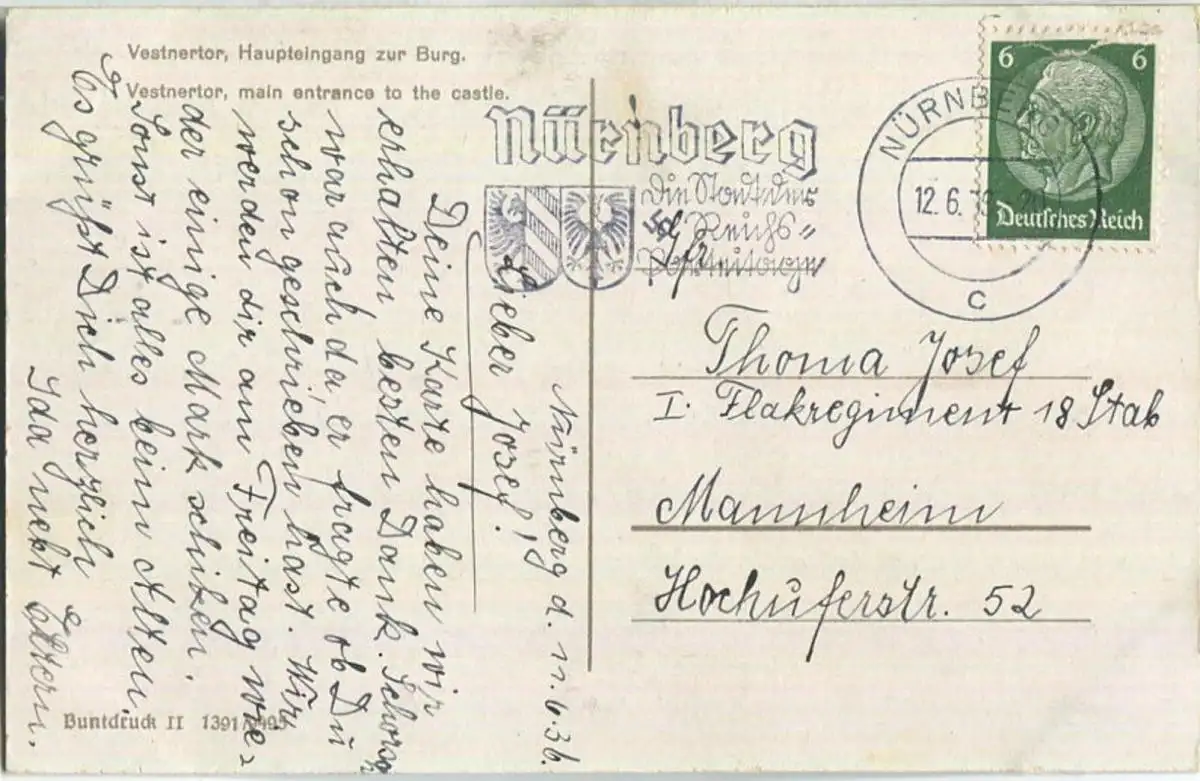 Vestnertor, Haupteingang zur Burg.
Vestnertor, main entrance to the castle.
Nürnberg
Die Stadt der
Reichs=
parteitage
NÜRNBE
12.6.3
c
6 6
Deutsches Reich
Nürnberg d. 11.6.36.
Lieber Josef!
Deine Karte haben wir
erhalten besten Dank. Schorsch
war auch da er fragte ob Du
schon geschrieben hast. Wir
werden dir am Freitag wie=
der einige Mark schiken.
Sonst ist alles beim Alten.
Es grüßt Dich herzlich
Ida nebt Eltern.
Thoma Josef
I. Flakregiment 18 Stab
Mannheim
Hochuferstr. 52
Buntdruck II 1391